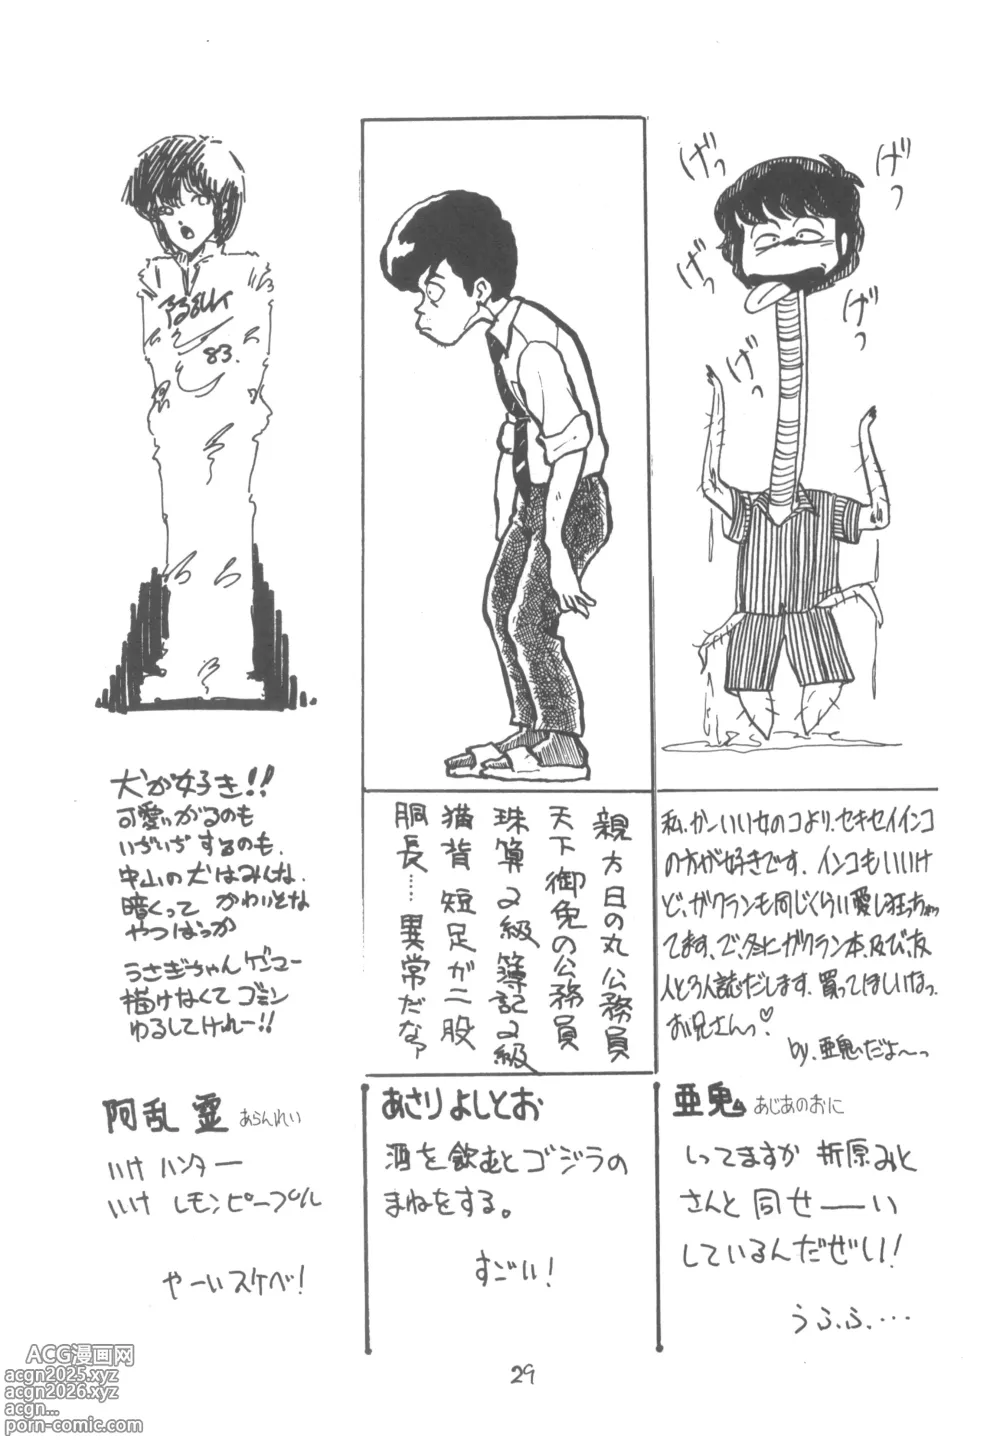 げっ
げっ
げっ
げっ
げっ
83.
犬が好き!!
可愛いがるのも
いぢいぢするのも、
中山の犬はみんな、
暗くって かわいとな
やつばっか
うさぎちゃんゲンコー
描けなくてゴミン
ゆるしてけれー!!
親方日の丸公務員
天下御免の公務員
珠算2級簿記2級
猫背短足がニ股
胴長……異常だなァ
私、かーいい女のコより、セキセイインコ
の方が好きです。インコもいいけ
ど、ガクランも同じくらい愛し狂っちゃっ
てます。で、冬にガクラン本、及び、友
人と同人誌だします。買ってほしいなっ、
お兄さんっ♡
by.亜鬼だよ〜っ
阿乱霊 あらんれい
いけ ハンター
いけ レモンピープル
やーいスケベ!
あさりよしとお
酒を飲むとゴジラの
まねをする。
すごい!
亜鬼 あじあのおに
しってますか 折原みと
さんと 同せーーい
しているんだぜい!
うふふ…
29
ACG漫画网
acgn2025.xyz
acgn2026.xyz
acgn...
porn-comic.com